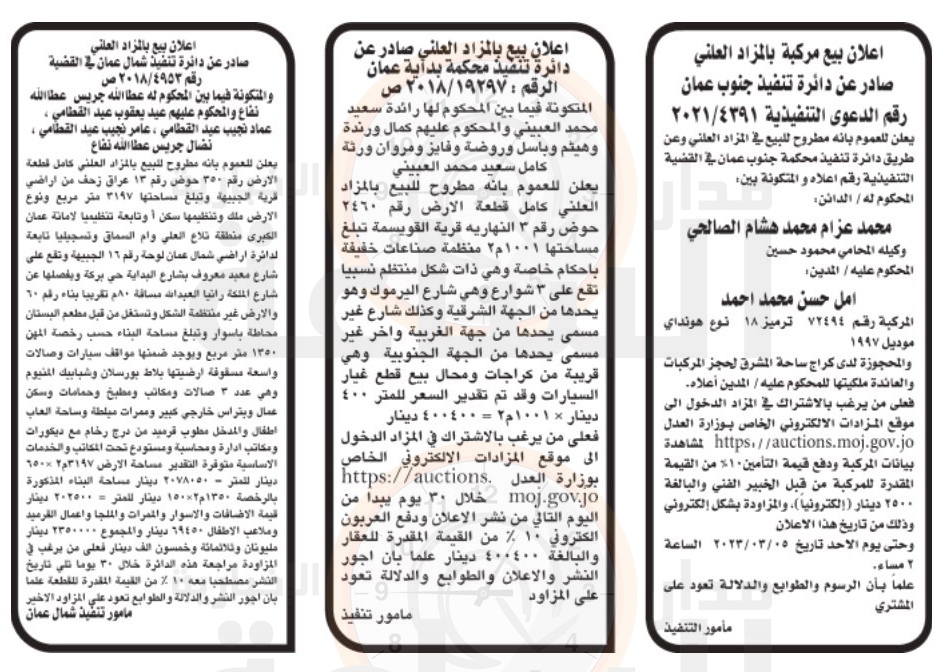 اعلان بيع مركبة بالمزاد العلني
صادر عن دائرة تنفيذ جنوب عمان
رقم الدعوى التنفيذية ٢٠٢١/٤٣٩١
يعلن للعموم بانه مطروح للبيع في المزاد العلني وعن
طريق دائرة تنفيذ محكمة جنوب عمان في القضية
التنفيذية رقم اعلاه و المتكونة بين:
المحكوم له / الدائن:
محمد عزام محمد هشام الصالحي
وكيله المحامي محمود حسين
المحكوم عليه / المدين:
امل حسن محمد احمد
المركبة رقم ٧٢٤٩٤ ترميز ١٨ نوع هونداي
موديل ١٩٩٧
والمحجوزة لدى كراج ساحة المشرق لحجز المركبات
والعائدة ملكيتها للمحكوم عليه / المدين أعلاه.
فعلى من يرغب بالاشتراك في المزاد الدخول الى
موقع المزادات الالكتروني الخاص بوزارة العدل
https://auctions.moj.gov.jo لمشاهدة
بيانات المركبة ودفع قيمة التأمين١٠٪ من القيمة
المقدرة للمركبة من قبل الخبير الفني والبالغة
٢٥٠٠ دينار (إلكترونيا)، والمزاودة بشكل إلكتروني
وذلك من تاريخ هذا الاعلان
وحتى يوم الاحد تاريخ ٢٠٢٣/٠٣/٠٥ الساعة
٢ مساء.
علماً بأن الرسوم والطوابع والدلالة تعود على
المشتري
مأمور التنفيذ
اعلان بيع بالمزاد العلني صادر عن
دائرة تنفيذ محكمة بداية عمان
الرقم : ٢٠١٨/١٩٢٩٧ ص
المتكونة فيما بين المحكوم لها رائدة سعيد
محمد العبيني والمحكوم عليهم كمال ورندة
وهيثم وباسل وروضة وفايز ومروان ورثة
كامل سعيد محمد العبيني
يعلن للعموم بانه مطروح للبيع بالمزاد
العلني كامل قطعة الارض رقم ٢٤٦٠
حوض رقم ٣ النهاريه قرية القويسمة تبلغ
مساحتها ١٠٠١م٢ منظمة صناعات خفيفة
باحكام خاصة وهي ذات شكل منتظم نسبيا
تقع على ٣ شوارع وهي شارع اليرموك وهو
يحدها من الجهة الشرقية وكذلك شارع غير
مسمى يحدها من جهة الغربية واخر غير
مسمى يحدها من الجهة الجنوبية وهي
قريبة من كراجات ومحال بيع قطع غيار
السيارات وقد تم تقدير السعر للمتر ٤٠٠
دينار × ١٠٠١م٢ = ٤٠٠٤٠٠ دينار
فعلى من يرغب بالاشتراك في المزاد الدخول
الى موقع المزادات الالكتروني الخاص
بوزارة العدل https://auctions.
moj.gov.jo خلال ٣٠ يوم يبدا من
اليوم التالي من نشر الاعلان ودفع العربون
الكتروني ١٠ ٪ من القيمة المقدرة للعقار
والبالغة ٤٠٠٤٠٠ دينار علما بان اجور
النشر والاعلان والطوابع والدلالة تعود
على المزاود
مامور تنفيذ
اعلان بيع بالمزاد العلني
صادر عن دائرة تنفيذ شمال عمان في القضية
رقم ٢٠١٨/٤٩٥٣ ص
والمتكونة فيما بين المحكوم له عطاالله جريس عطاالله
نفاع والمحكوم عليهم عيد يعقوب عيد القطامي ،
عماد نجيب عيد القطامي ، عامر نجيب عيد القطامي ،
نضال جريس عطاالله نفاع
يعلن للعموم بانه مطروح للبيع بالمزاد العلني كامل قطعة
الارض رقم ٣٥٠ حوض رقم ١٣ عراق زحف من اراضي
قرية الجبيهة وتبلغ مساحتها ٣١٩٧ متر مربع ونوع
الارض ملك وتنظيمها سكن أ وتابعة تنظيميا لامانة عمان
الكبرى منطقة تلاع العلي وام السماق وتسجيليا تابعة
لدائرة اراضي شمال عمان لوحة رقم ١٦ الجبيهة وتقع على
شارع معبد معروف بشارع البداية حي بركة ويفصلها عن
شارع الملكة رانيا العبدالله مسافة ٨٠م تقريبا بناء رقم ٦٠
والارض غير منتظمة الشكل وتستغل من قبل مطعم البستان
محاطة باسوار وتبلغ مساحة البناء حسب رخصة المهن
١٣٥٠ متر مربع ويوجد ضمنها مواقف سيارات وصالات
واسعة مسقوفة ارضيتها بلاط بورسلان وشبابيك المنيوم
وهي عدد ٣ صالات ومكاتب ومطبخ وحمامات وسكن
عمال وبتراس خارجي كبير وممرات مبلطة وساحة العاب
اطفال والمدخل مطوب قرميد من درج رخام مع ديكورات
ومكاتب ادارة ومحاسبة ومستودع تحت المكاتب والخدمات
الاساسية متوفرة التقدير مساحة الارض ٣١٩٧م٢ ×٦٥٠
دينار للمتر = ٢٠٧٨٠٥٠ دينار مساحة البناء المذكورة
بالرخصة ١٣٥٠م٢×١٥٠ دينار للمتر = ٢٠٢٥٠٠ دينار
قيمة الاضافات والاسوار والممرات والملجا واعمال القرميد
وملاعب الاطفال ٦٩٤٥٠ دينار والمجموع ٢٣٥٠٠٠٠ دينار
مليونان وثلاثمائة وخمسون الف دينار فعلى من يرغب في
المزاودة مراجعة هذه الدائرة خلال ٣٠ يوما تلي تاريخ
النشر مصطحبا معه ١٠ ٪ من القيمة المقدرة للقطعة علما
بان اجور النشر والدلالة والطوابع تعود على المزاود الاخير
مامور تنفيذ شمال عمان